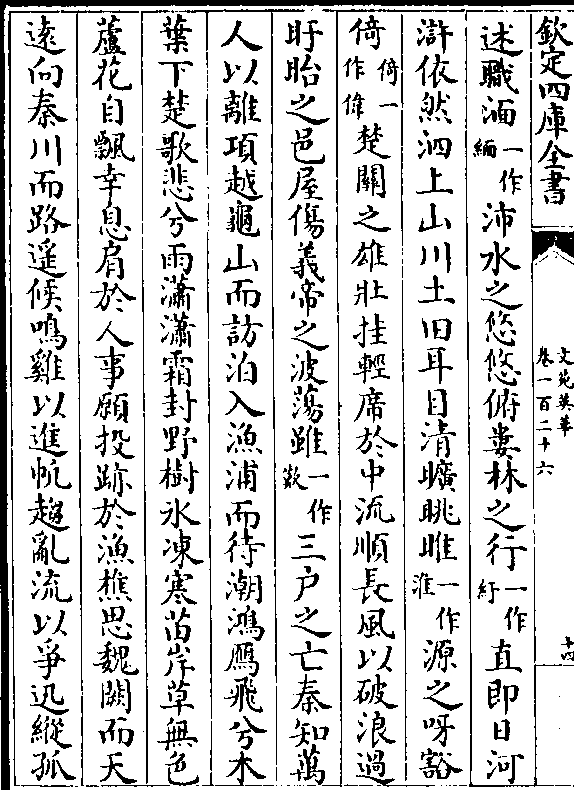 欽定四庫全書
文苑英華
卷一百二十六
十四
述職湎一作緬沛水之悠悠俯婁林之行一作紆直即日河
滸依然泗上山川土田耳目清曠眺睢一作淮源之呀豁
倚倚一作偉楚關之雄壯挂輕席於中流順長風以破浪過
盱眙之邑屋傷義帝之波蕩雖一作歎三户之亡秦知萬
人以離項越龜山而訪泊入漁浦而待潮鴻鴈飛兮木
葉下楚歌悲兮雨瀟瀟霜封野樹氷凍寒苗岸草無色
蘆花自飄幸息肩於人事願投跡於漁樵思魏闕而天
遠向秦川而路遥候鳴雞以進帆趨亂流以爭迅縱孤